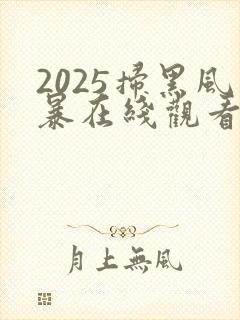 2025掃黑風
暴在綫觀看
月上無風